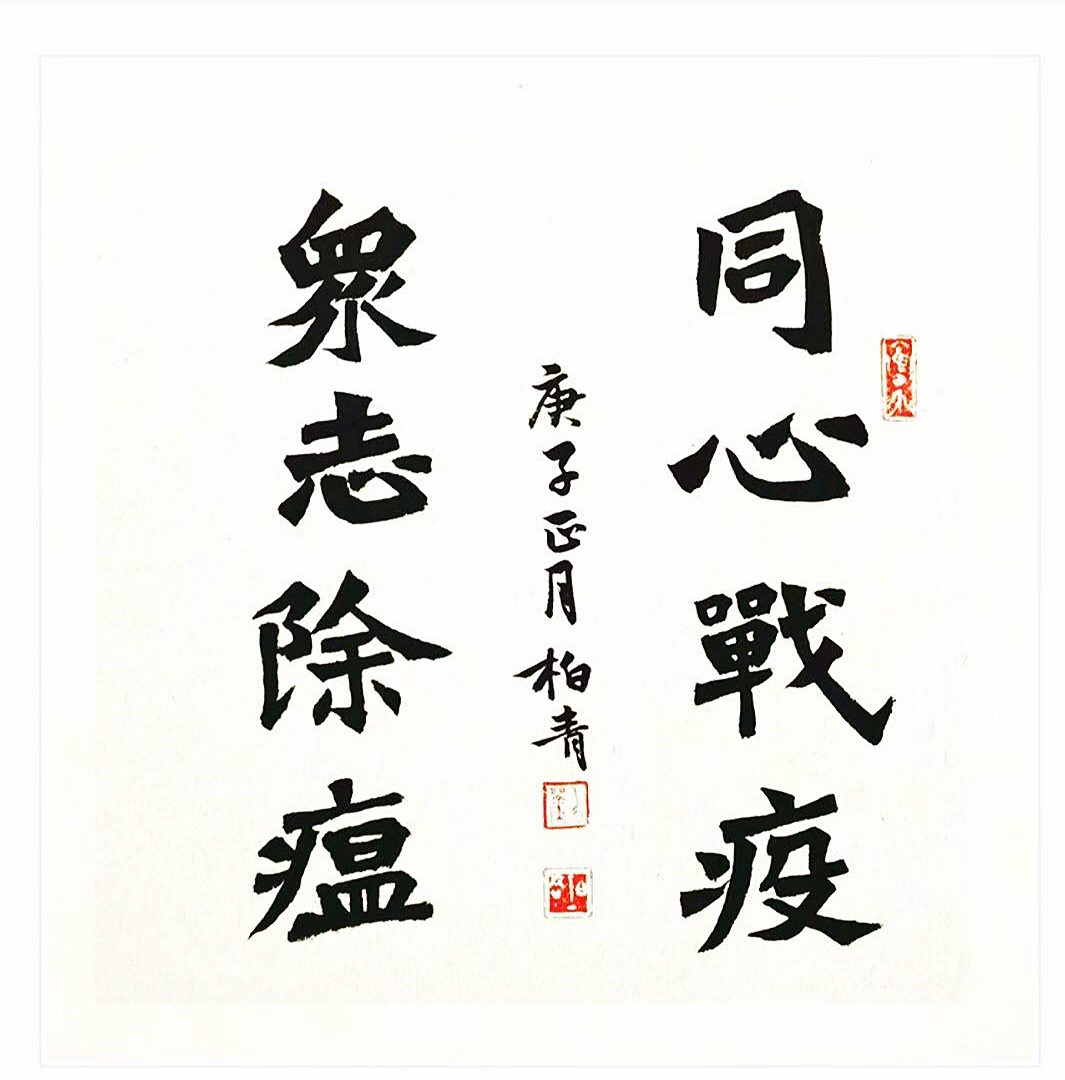 同心戰疫
庚子正月柏青
眾志除瘟